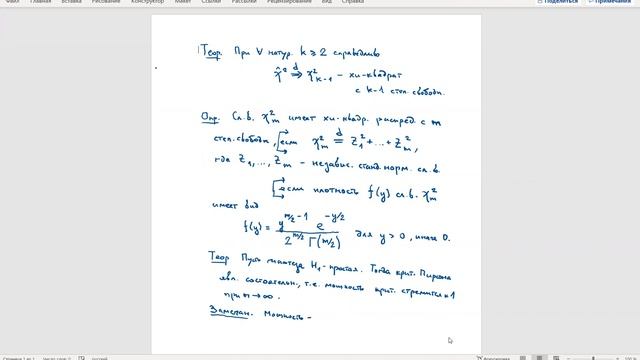 Файл Главная Вставка Рисование Конструктор Макет Ссылки Рассылки Рецензирование Вид Справка Поделиться Примечания
Теор. При ∀ натур. k ⩾ 2 справедливо
χ̂² ⇒ᵈ χ²ₖ₋₁ – хи-квадрат
с k-1 степ. свободы.
Опр. Сл.в. χ²ₘ имеет хи-квадр. распред. с m
степ. свободы, если χ²ₘ =ᵈ Z₁² + ... + Zₘ²,
где Z₁, ..., Zₘ – независ. станд. норм. сл.в.
если плотность f(y) сл.в. χ²ₘ
имеет вид
f(y) = y^(m/2 - 1) e^(-y/2) / (2^(m/2) Γ(m/2)) для y > 0, иначе 0.
Теор Пусть гипотеза H₁ - простая. Тогда крит. Пирсона
явл. состоятельн., т.е. мощность крит. стремится к 1
при n → ∞.
Замечан. Мощность –